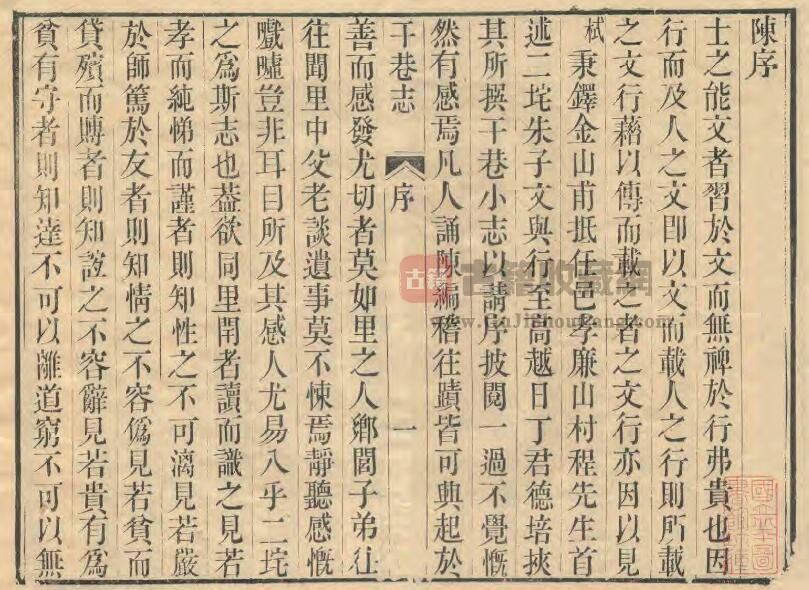 陳序
士之能文者習於文而無裨於行弗貴也因
行而及人之文卽以文而載人之行則所載
之文行藉以傳而載之者之文行亦因以見
栻秉鐸金山甫抵任邑孝廉山村程先生首
述二垞朱子文與行至高越日丁君德培挾
其所撰干巷小志以請序披閱一過不覺慨
然有感焉凡人誦陳編稽往蹟皆可興起於
干巷志 序 一
善而感發尤切者莫如里之人鄉閭子弟往
往聞里中父老談遺事莫不悚焉靜聽感慨
嚱嘘豈非耳目所及其感人尤易入乎二垞
之爲斯志也葢欲同里閈者讀而識之見若
孝而純悌而謹者則知性之不可漓見若嚴
於師篤於友者則知情之不容僞見若貧而
貸殯而賻者則知誼之不容辭見若貴有爲
貧有守者則知達不可以離道窮不可以無
古籍
古籍收藏網
www.GuJiShouCang.com